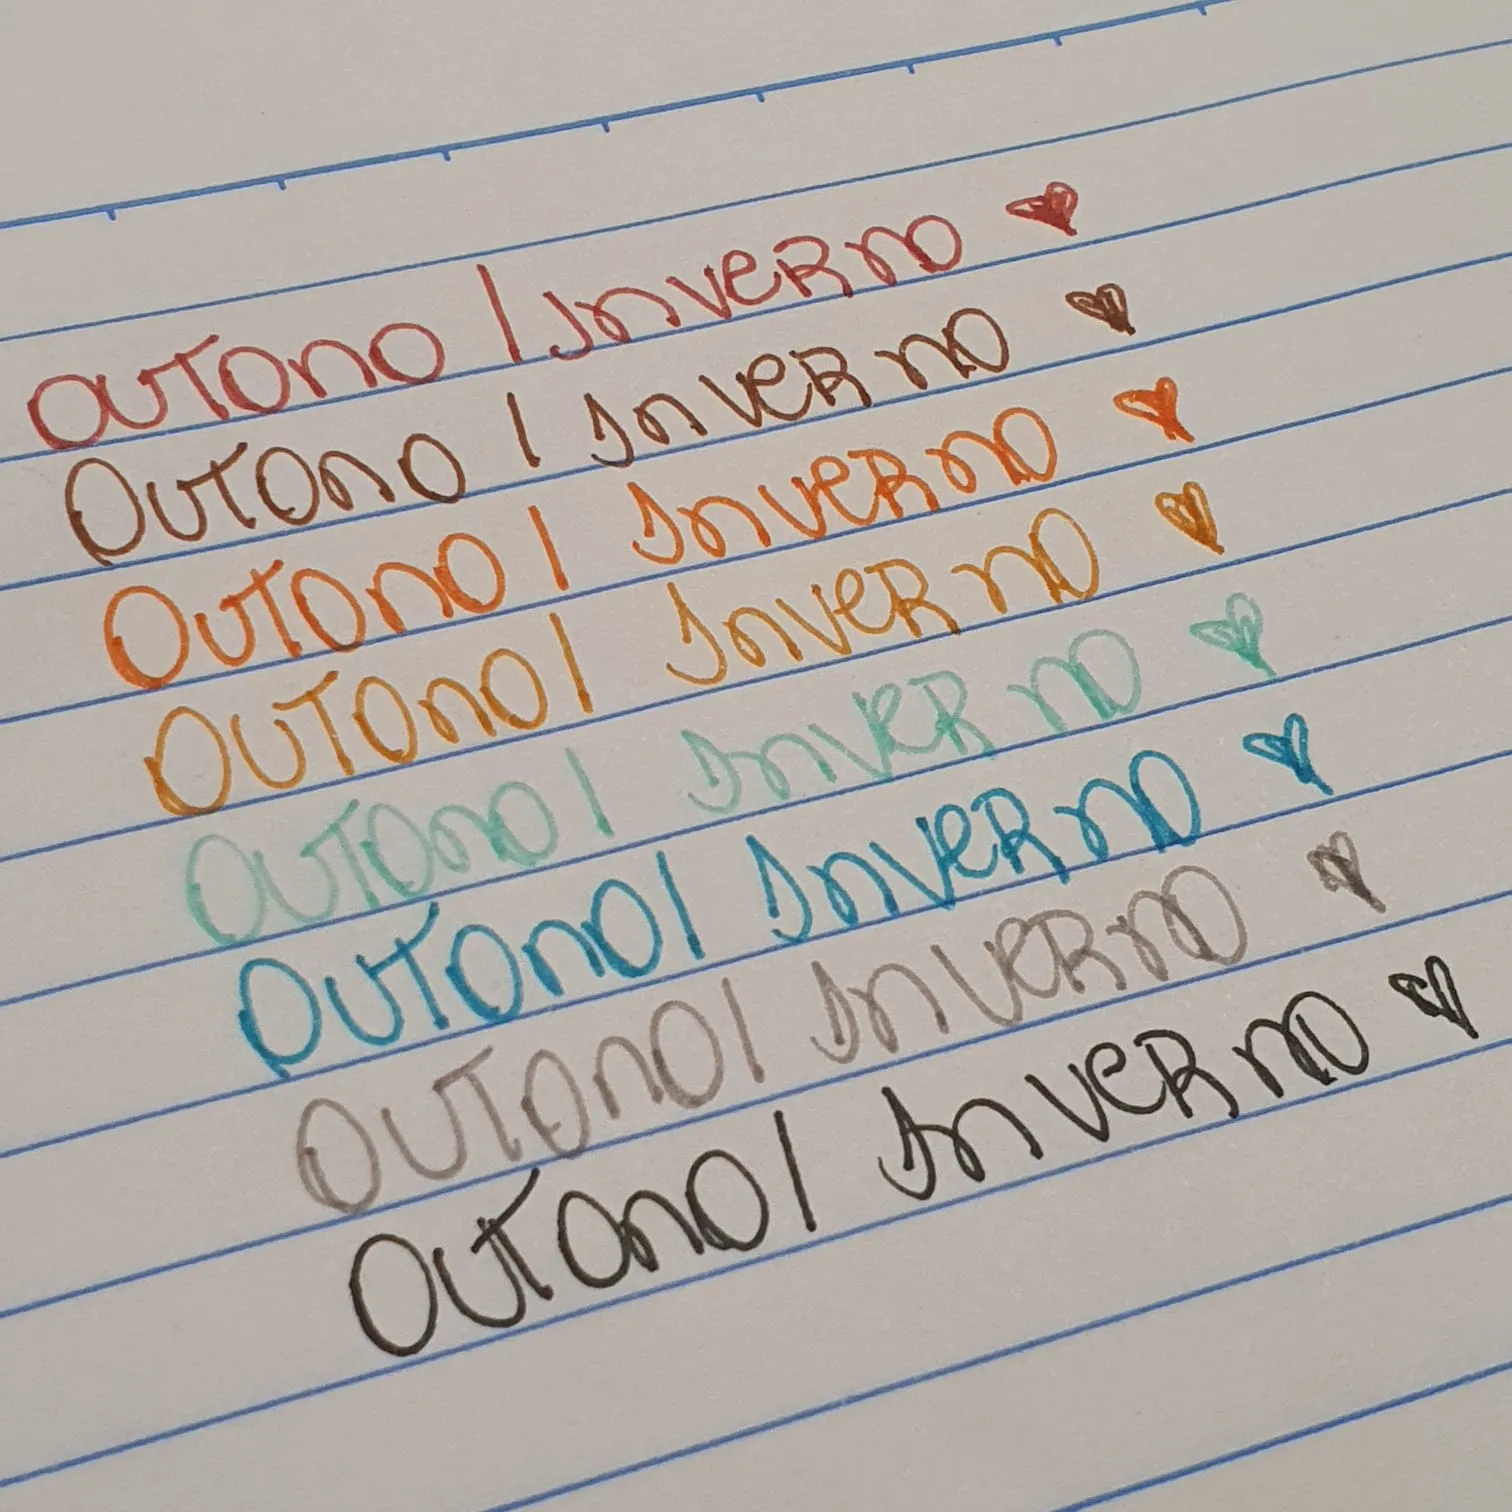 OUTONO | INVERNO ♥
OUTONO | INVERNO ♥
OUTONO | INVERNO ♥
OUTONO | INVERNO ♥
OUTONO | INVERNO ♥
OUTONO | INVERNO ♥
OUTONO | INVERNO ♥
OUTONO | INVERNO ♥